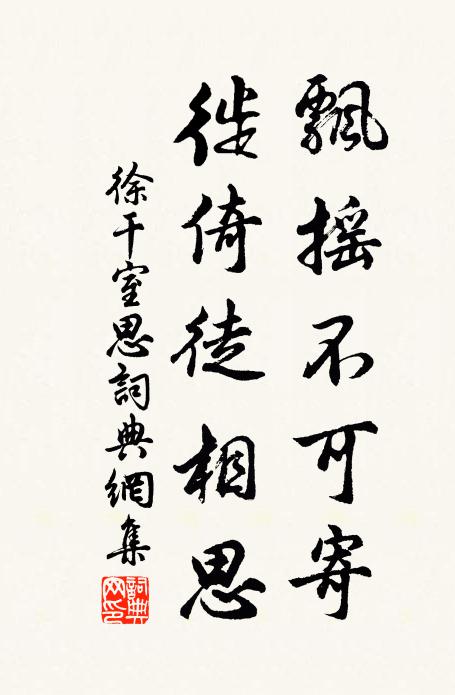 飄搖不可寄
徙倚徒相思
徐干室思詞典網集
詞典網印